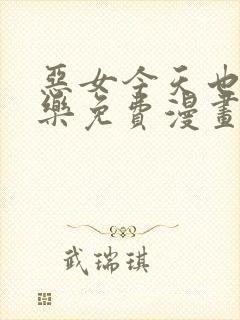 惡女今天也
樂免費漫畫
武瑞琪